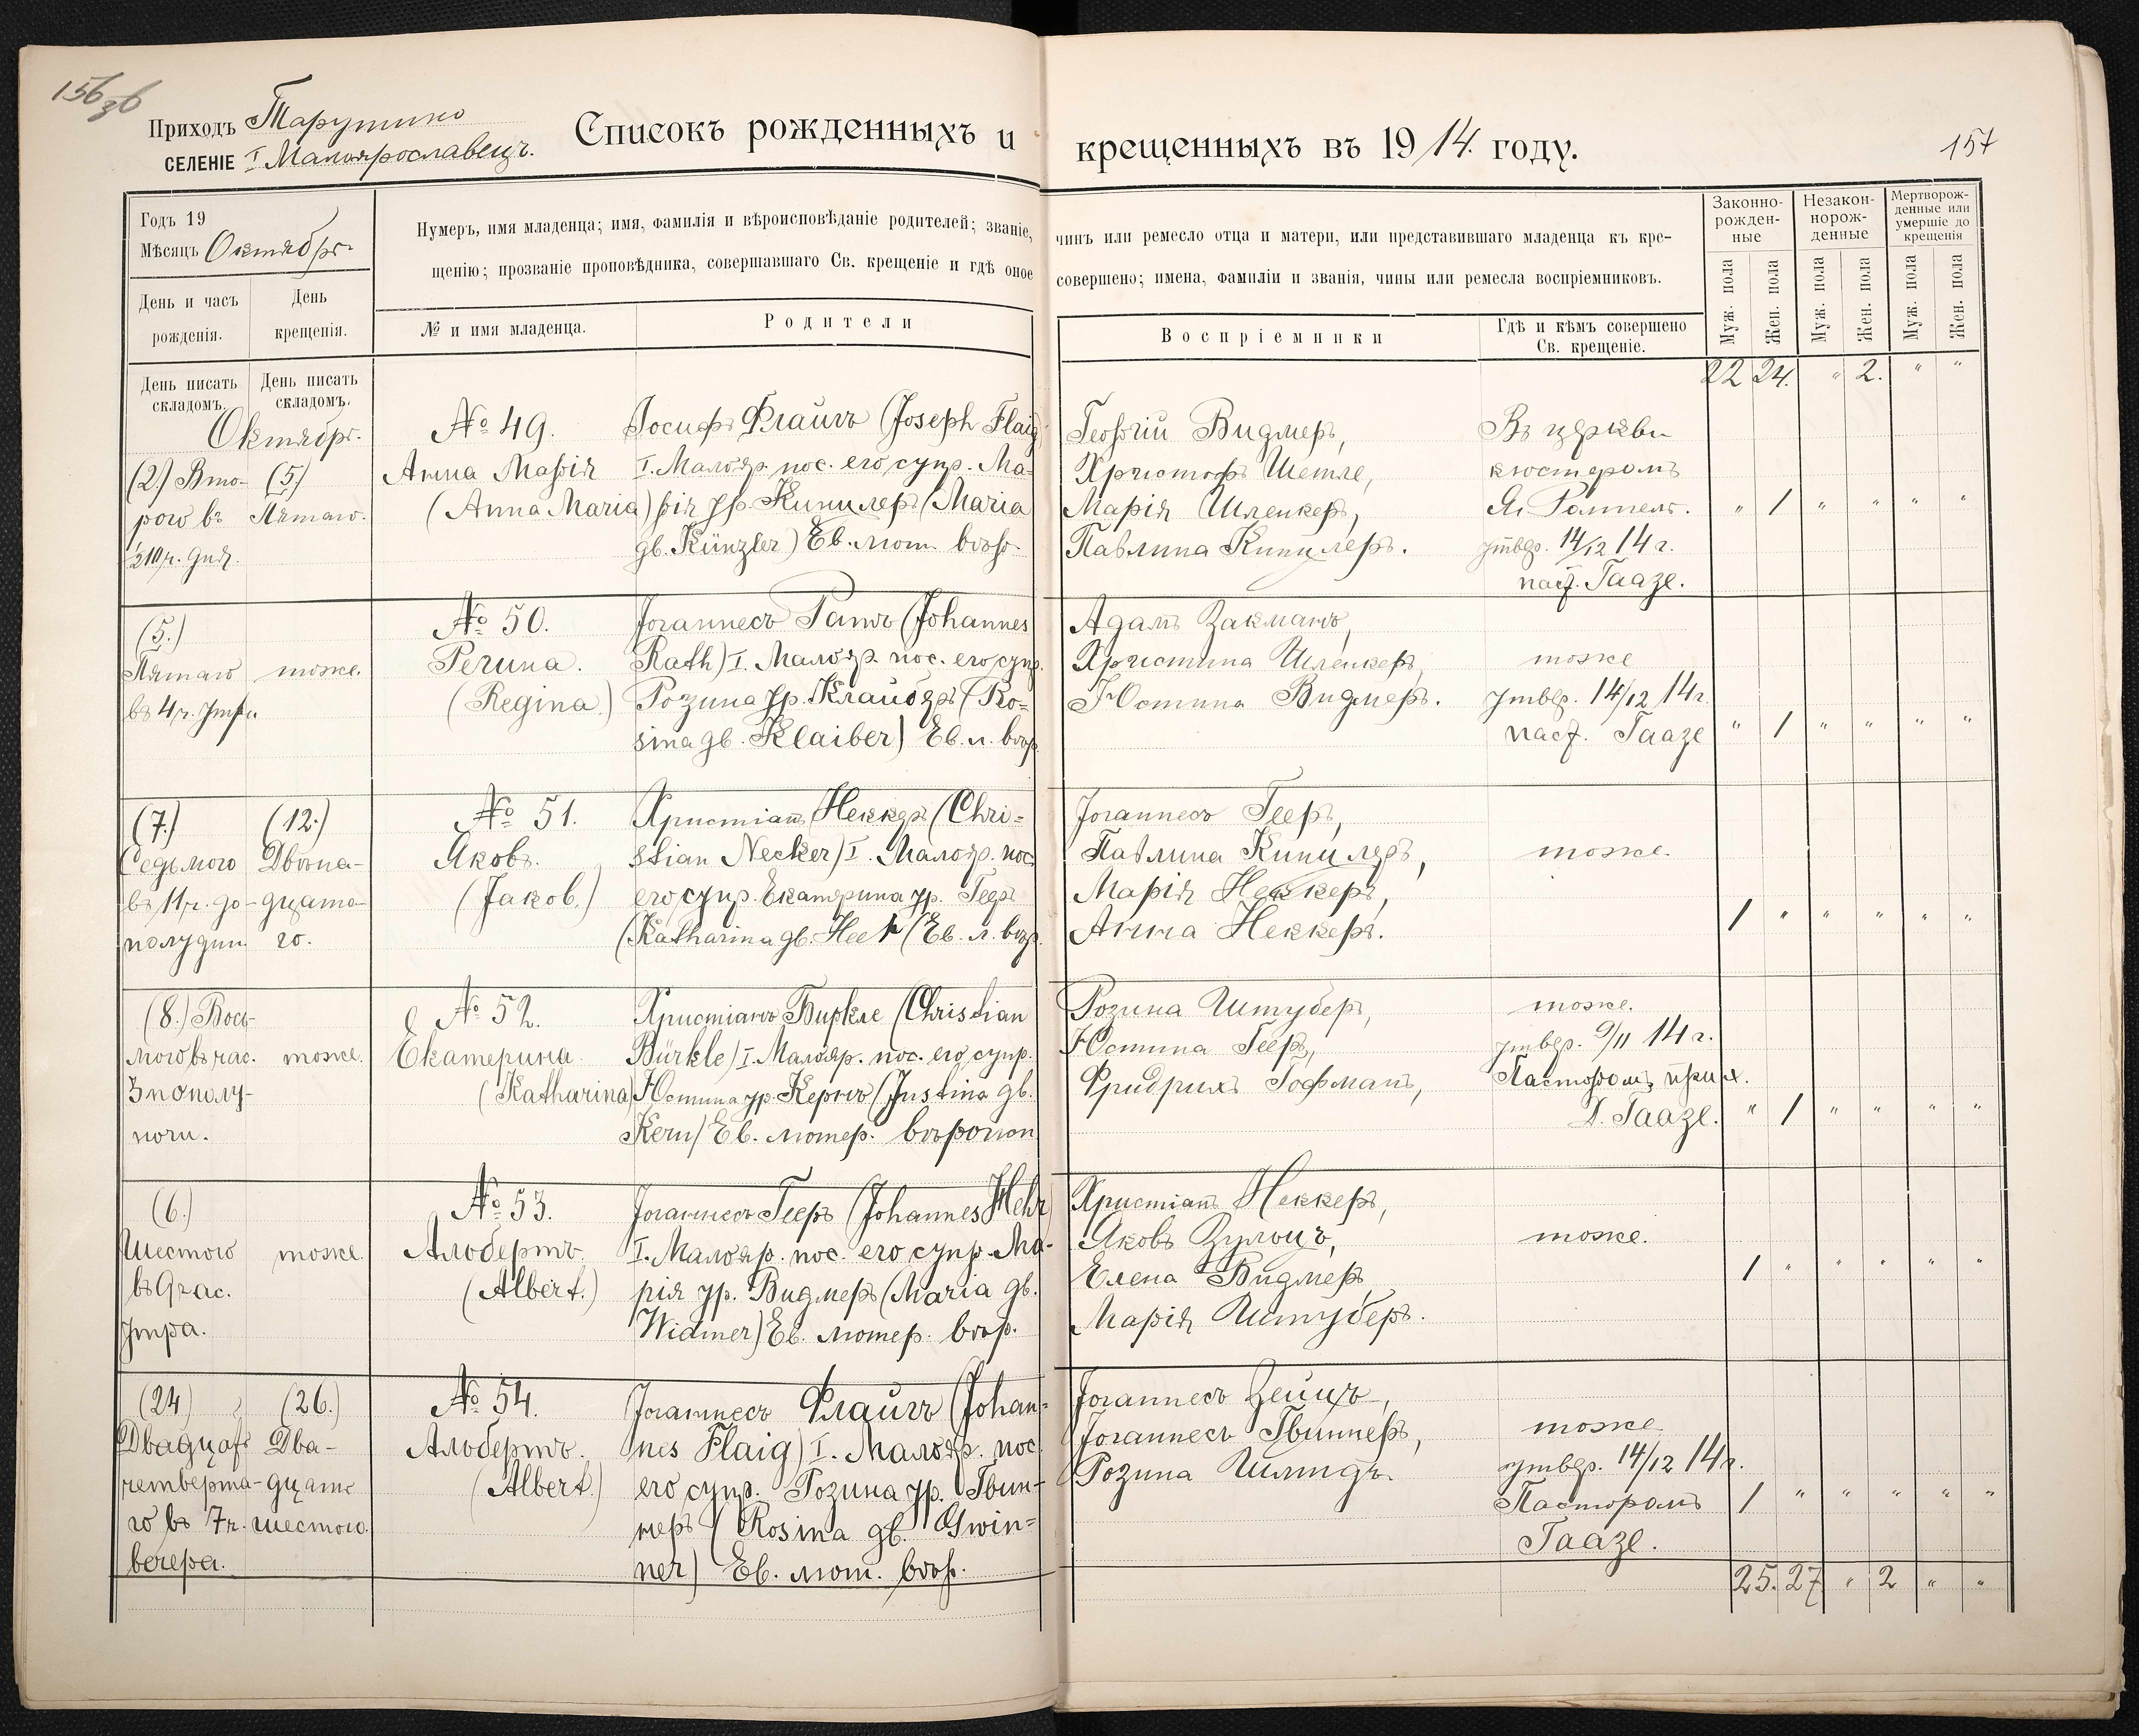 156 зв
Приходъ Тарутино
СЕЛЕНІЕ I Малоярославецъ.
Списокъ рожденныхъ и
крещенныхъ въ 1914. году.
157
Годъ 19
Мѣсяцъ Октябрь
День и часъ рожденія.
День крещенія.
Нумеръ, имя младенца; имя, фамилія и вѣроисповѣданіе родителей; званіе,
щенію; прозваніе проповѣдника, совершавшаго Св. крещеніе и гдѣ оное
№ и имя младенца.
Родители
чинъ или ремесло отца и матери, или представившаго младенца къ кре-
совершено; имена, фамиліи и званія, чины или ремесла воспріемниковъ.
Воспріемники
Гдѣ и кѣмъ совершено
Св. крещеніе.
Законно-
рожден-
ные
Незакон-
норож-
денные
Мертворож-
денные или
умершіе до
крещенія
Муж. пола
Жен. пола
Муж. пола
Жен. пола
Муж. пола
Жен. пола
День писать
складомъ.
День писать
складомъ.
22 24. " 2. " "
Октябрь.
(2) Вто-
рого въ
дня.
(5)
Пятаго.
№ 49.
Анна Марія
(Anna Maria)
Іосифъ Флайгъ (Joseph Flaig)
I. Малояр. пос. его супр. Ма-
рія ур. Кинцлеръ (Maria
gb. Künzler) Ев. лют. вѣр.
Георгій Видмеръ,
Христофъ Шетле,
Марія Шленкеръ,
Павлина Кинцлеръ.
Въ церкви
кюстеромъ
Я.
утвер. 14/12 14 г.
паст. Гаазе.
" 1 " " " "
(5.)
Пятаго
въ 4 ч. утра
тоже.
№ 50.
Регина.
(Regina.)
Іоганнесъ Ратъ (Johannes
Rath) I. Малояр. пос. его супр.
Розина ур. Клайберъ (Ro-
sina gb. Klaiber) Ев. л. вѣр
Адамъ Закманъ,
Христина Шленкеръ,
Юстина Видмеръ.
тоже
утвер. 14/12 14 г.
паст. Гаазе
" 1 " " " "
(7.)
Седьмого
въ 11 ч. до-
полудни
(12.)
Двѣна-
дцата-
го.
№ 51.
Яковъ.
(Jakob.)
Христіанъ Неккеръ (Chri-
stian Necker) I. Малояр. пос
его супр. Екатерина ур. Гееръ
(Katharina gb. Heer (Ев. л. вѣр.
Іоганнесъ Гееръ,
Павлина Кинцлеръ,
Марія Неккеръ,
Анна Неккеръ.
тоже.
1 " " " " "
(8.) Вось-
мого въ час.
3 пополу-
ночи.
тоже.
№ 52.
Екатерина
(Katharina)
Христіанъ Биркле (Christian
Bürkle) I. Малояр. пос. его супр.
Юстина ур. Кернъ (Justina gb.
Kern) Ев. лютер. вѣроисп
Розина Штуберъ,
Юстина Гееръ,
Фридрихъ Гофманъ,
тоже.
утвер. 9/11 14 г.
Пасторомъ прих.
Д. Гаазе.
" 1 " " " "
(6.)
Шестого
въ 9 час.
утра.
тоже.
№ 53.
Альбертъ.
(Albert.)
Іоганнесъ Гееръ (Johannes Hehr)
I. Малояр. пос. его супр. Ма-
рія ур. Видмеръ (Maria gb.
Widmer) Ев. лютер. вѣр.
Христіанъ Неккеръ,
Яковъ Зульцъ,
Елена Видмеръ
Марія Штуберъ.
тоже.
1 " " " " "
(24)
Двадцать
четверта-
го въ 7 ч.
вечера.
(26.)
Два-
дцать
шестого.
№ 54.
Альбертъ.
(Albert.)
Іоганнесъ Флайгъ (Johan-
nes Flaig) I. Малояр. пос
его супр. Розина ур. Гвин-
неръ (Rosina gb. Gwin-
ner) Ев. лют. вѣр.
Іоганнесъ Зейцъ,
Іоганнесъ Гвиннеръ,
Розина Шмидъ.
тоже
утвер. 14/12 14 г.
Пасторомъ
Гаазе.
1 " " " " "
25. 27 " 2 " "